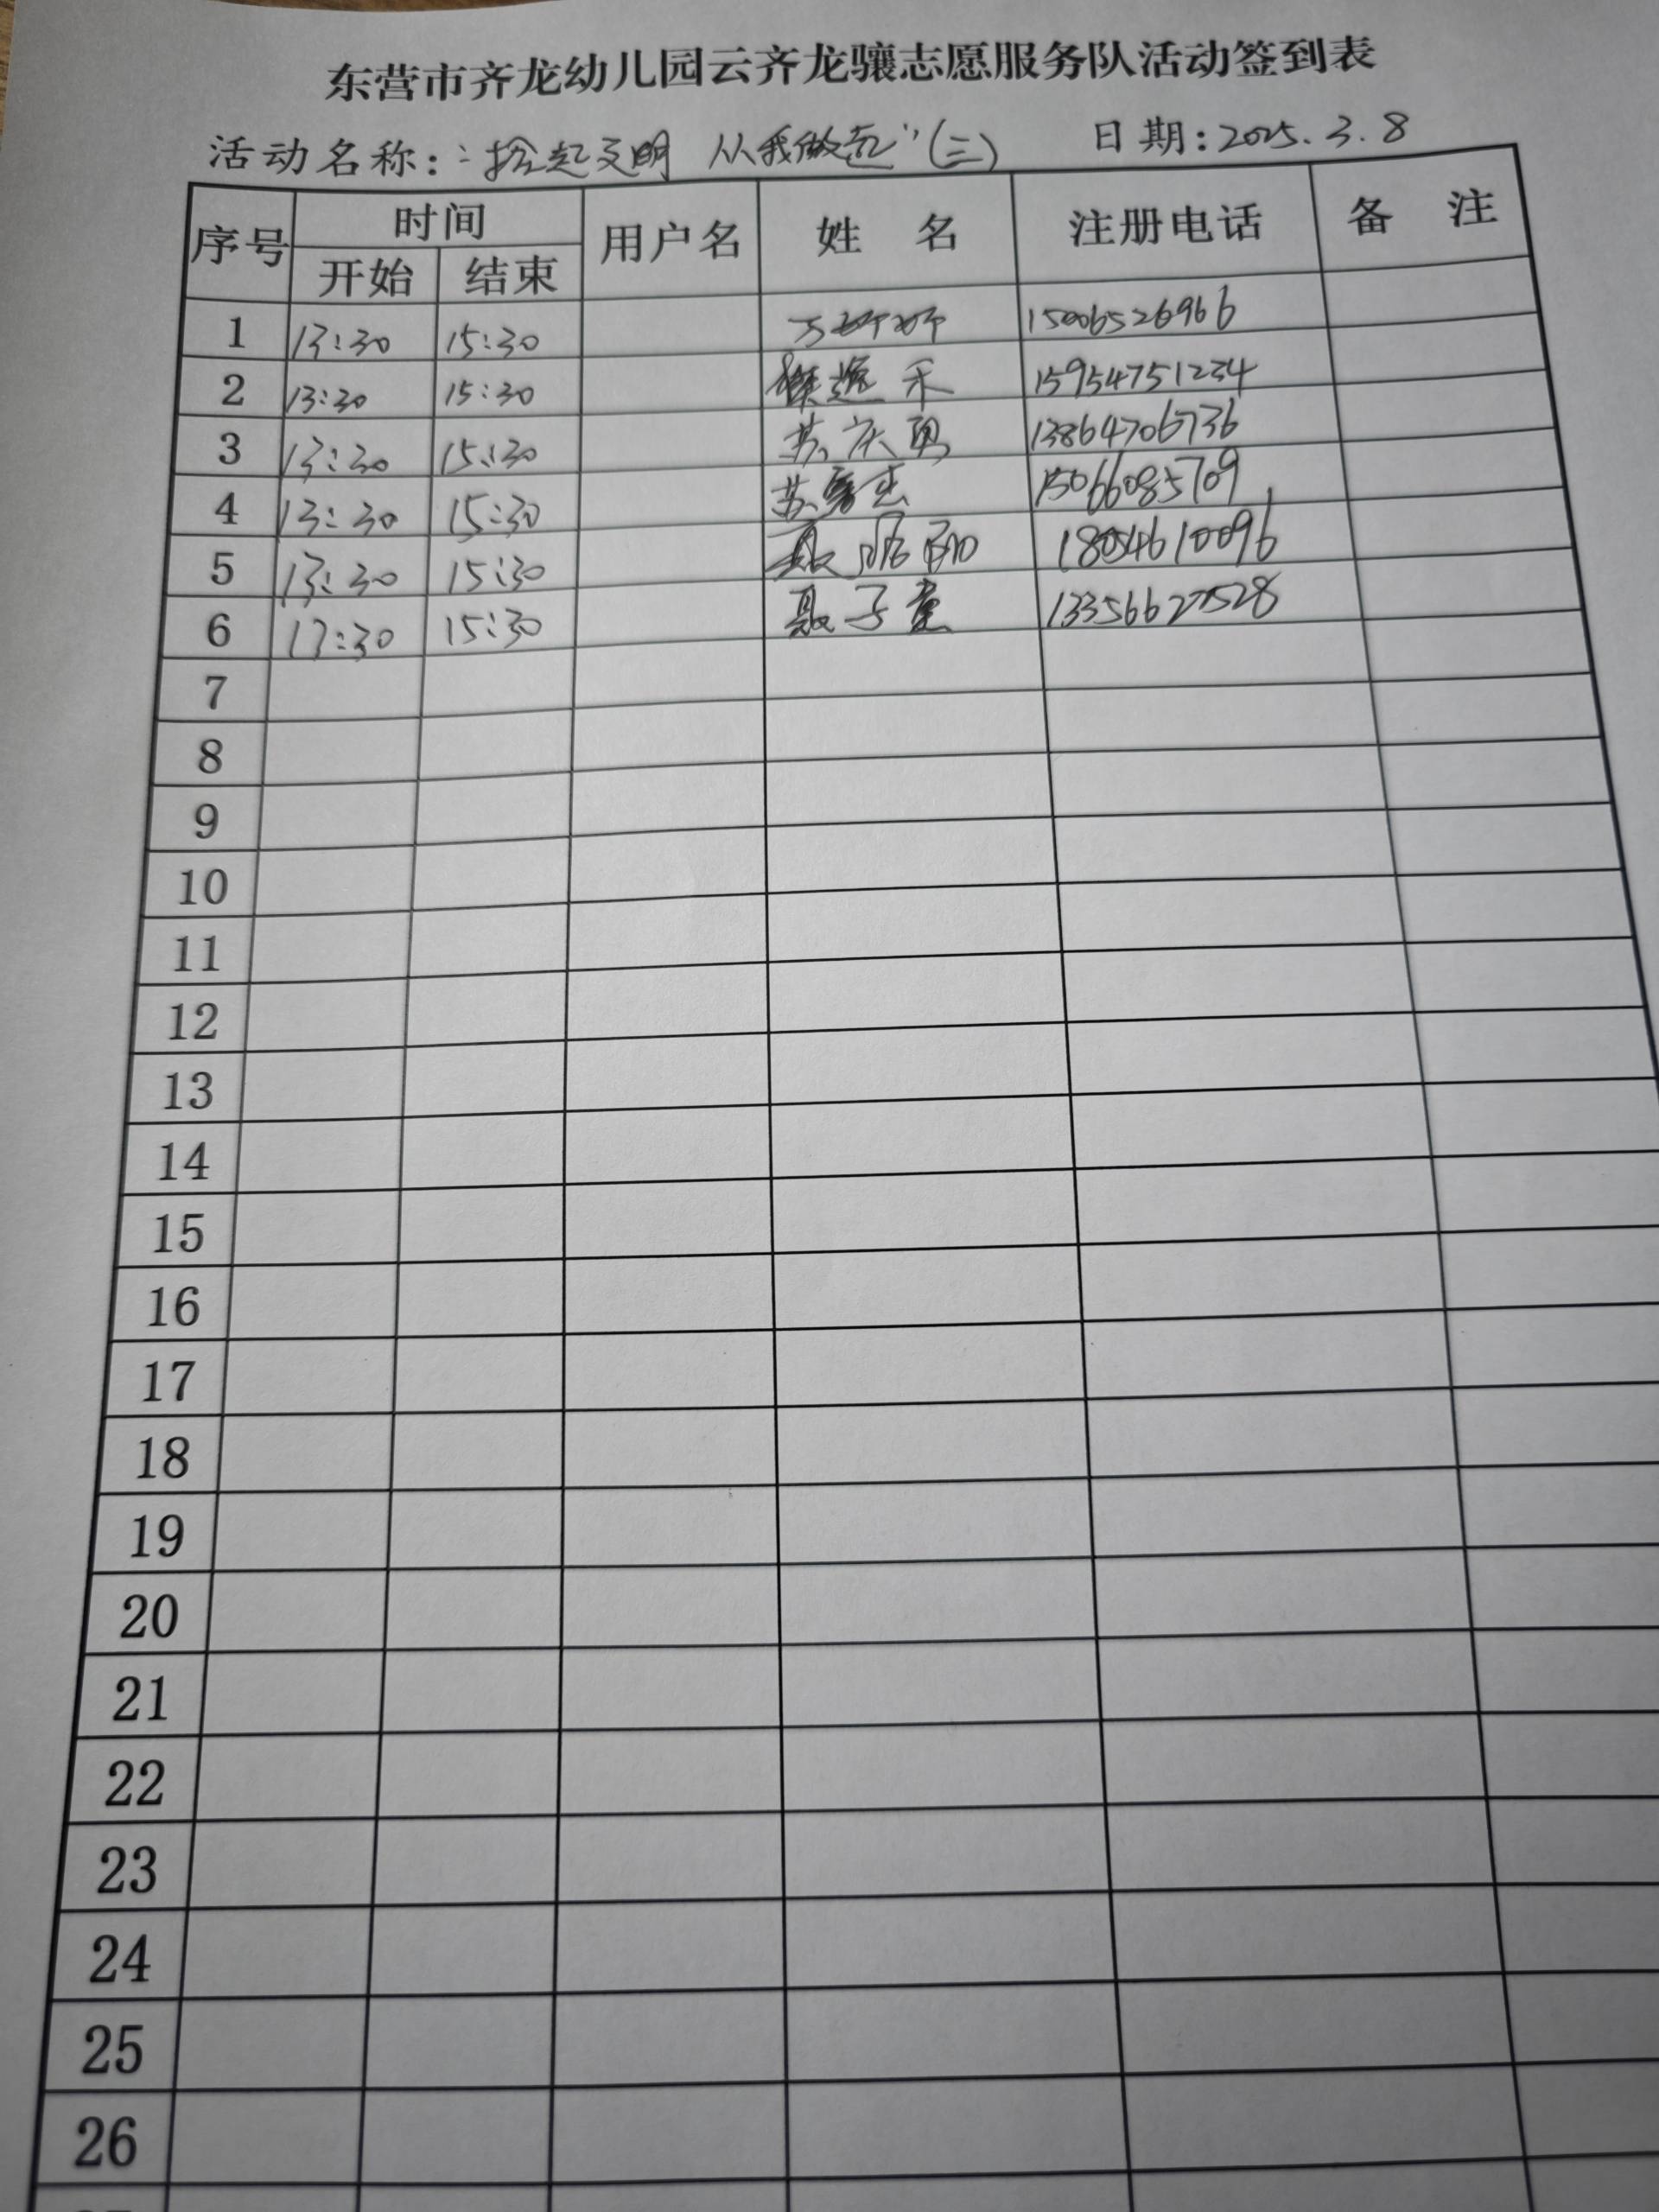 东营市齐龙幼儿园云齐龙骧志愿服务队活动签到表
活动名称：“拾起文明 从我做起”(三) 日期：2025.3.8
序号 时间 用户名 姓 名 注册电话 备 注
开始 结束
1 13:30 15:30 15006526966
2 13:30 15:30 禾 15954751234
3 13:30 15:30 苏庆勇 13864706736
4 13:30 15:30 苏 15066085709
5 13:30 15:30 聂 18054610096
6 13:30 15:30 聂子童 13356627528
7
8
9
10
11
12
13
14
15
16
17
18
19
20
21
22
23
24
25
26